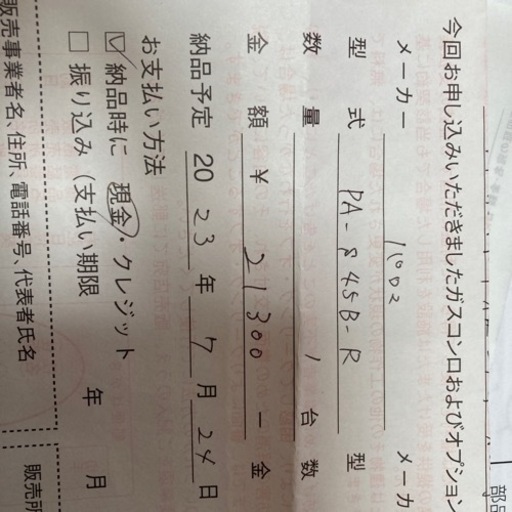 今回お申し込みいただきましたガスコンロおよびオプション
メーカー メーカ
型式 PA-S45B-R 型
数量 1台 数
金額 ¥21300- 金
納品予定 2023年7月24日
お支払い方法
☑ 納品時に 現金・クレジット
☐ 振り込み（支払い期限 年 月
販売事業者名、住所、電話番号、代表者氏名
販売所
部品